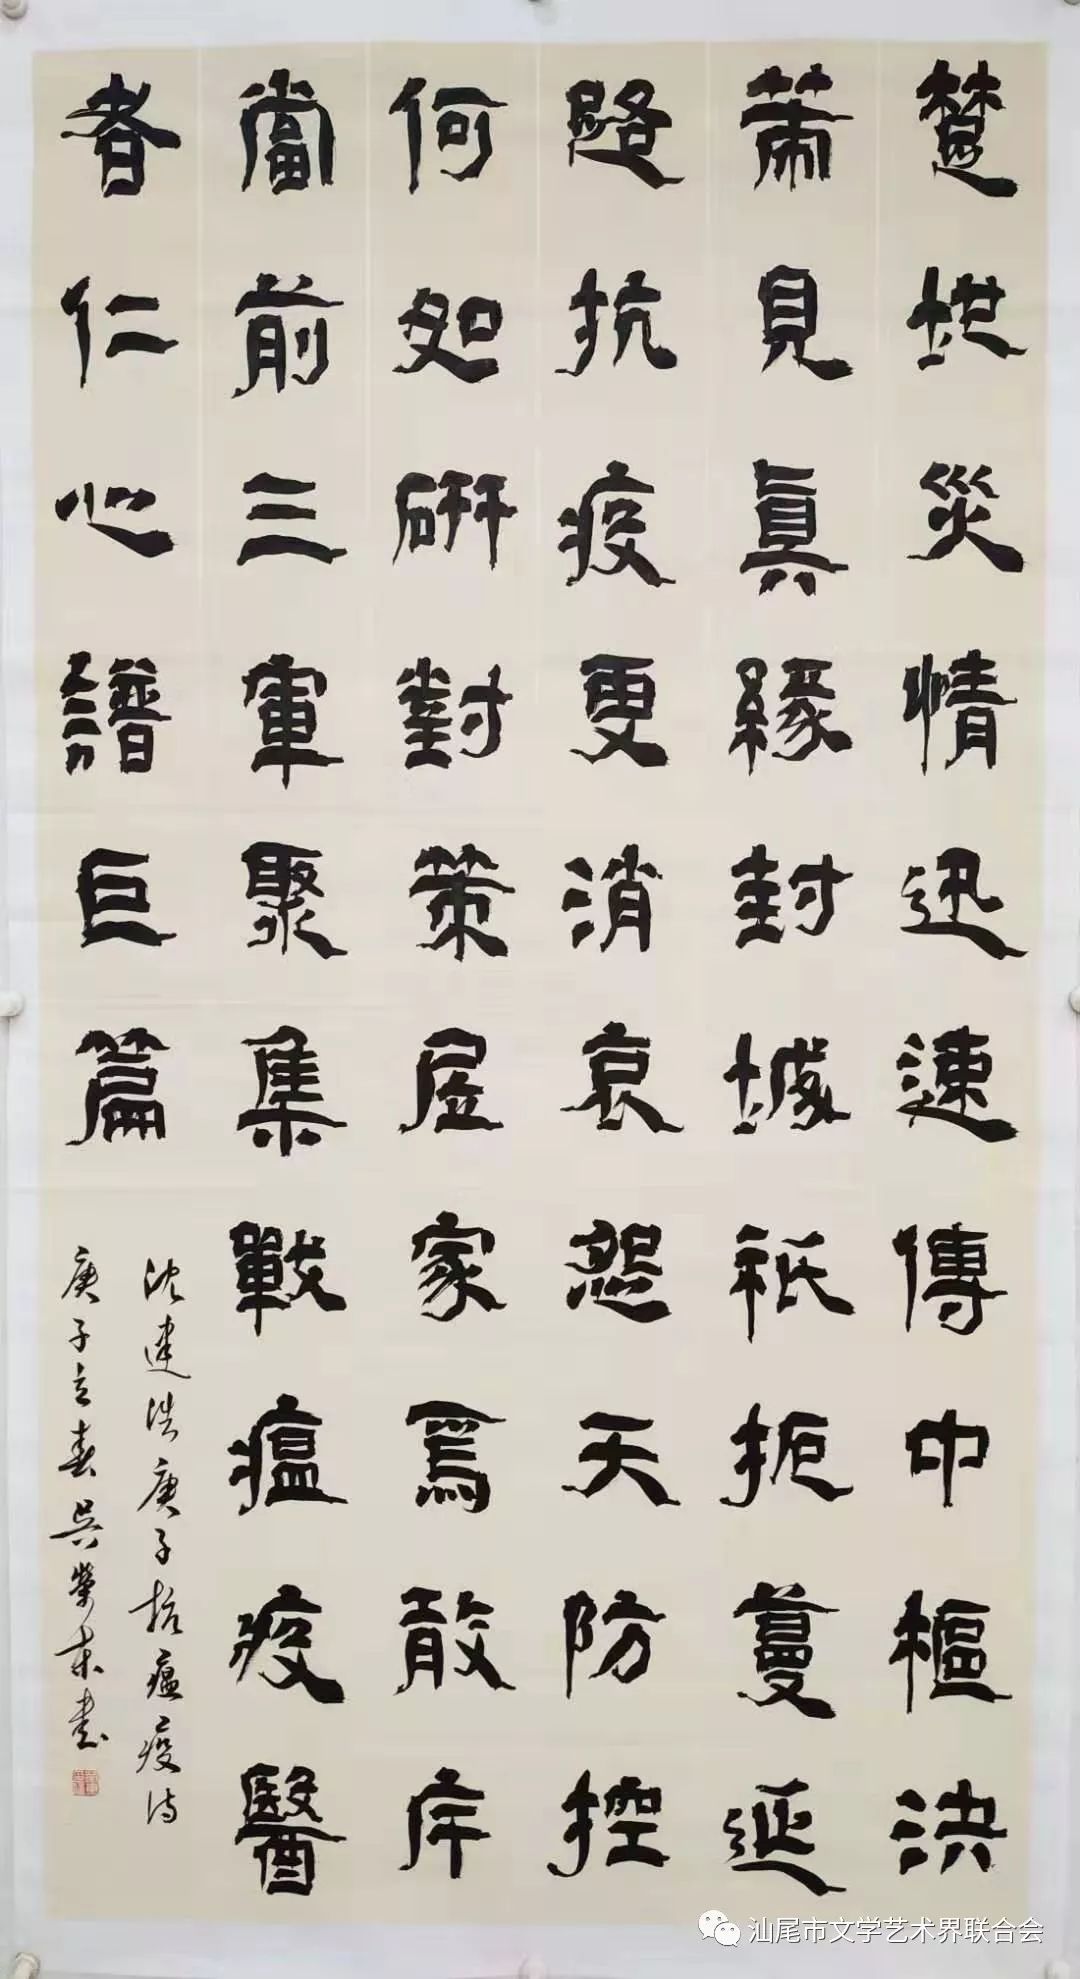 楚地災情迅速傳中樞決
策見真緣封城祇扼蔓延
路抗疫更消哀怨天防控
何如研對策居家焉敢斥
當前三軍聚集戰瘟疫醫
者仁心譜巨篇
沈建浩庚子抗瘟疫詩
庚子立春吳榮東書
汕尾市文学艺术界联合会